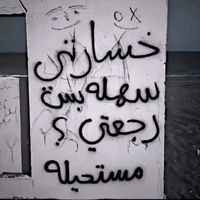 OX
خسارتي
سهله بس
رجعتي ؟
مستحيله